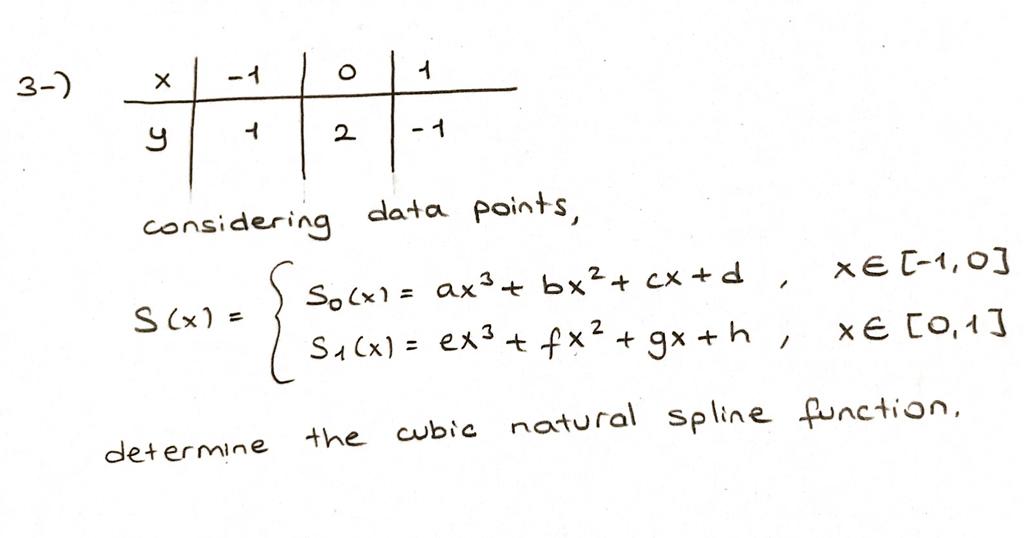 3-) x | -1 | 0 | 1
y | 1 | 2 | -1
considering data points,
S(x) = { S₀(x) = ax³ + bx² + cx + d , x ∈ [-1,0]
S₁(x) = ex³ + fx² + gx + h , x ∈ [0,1]
determine the cubic natural spline function.